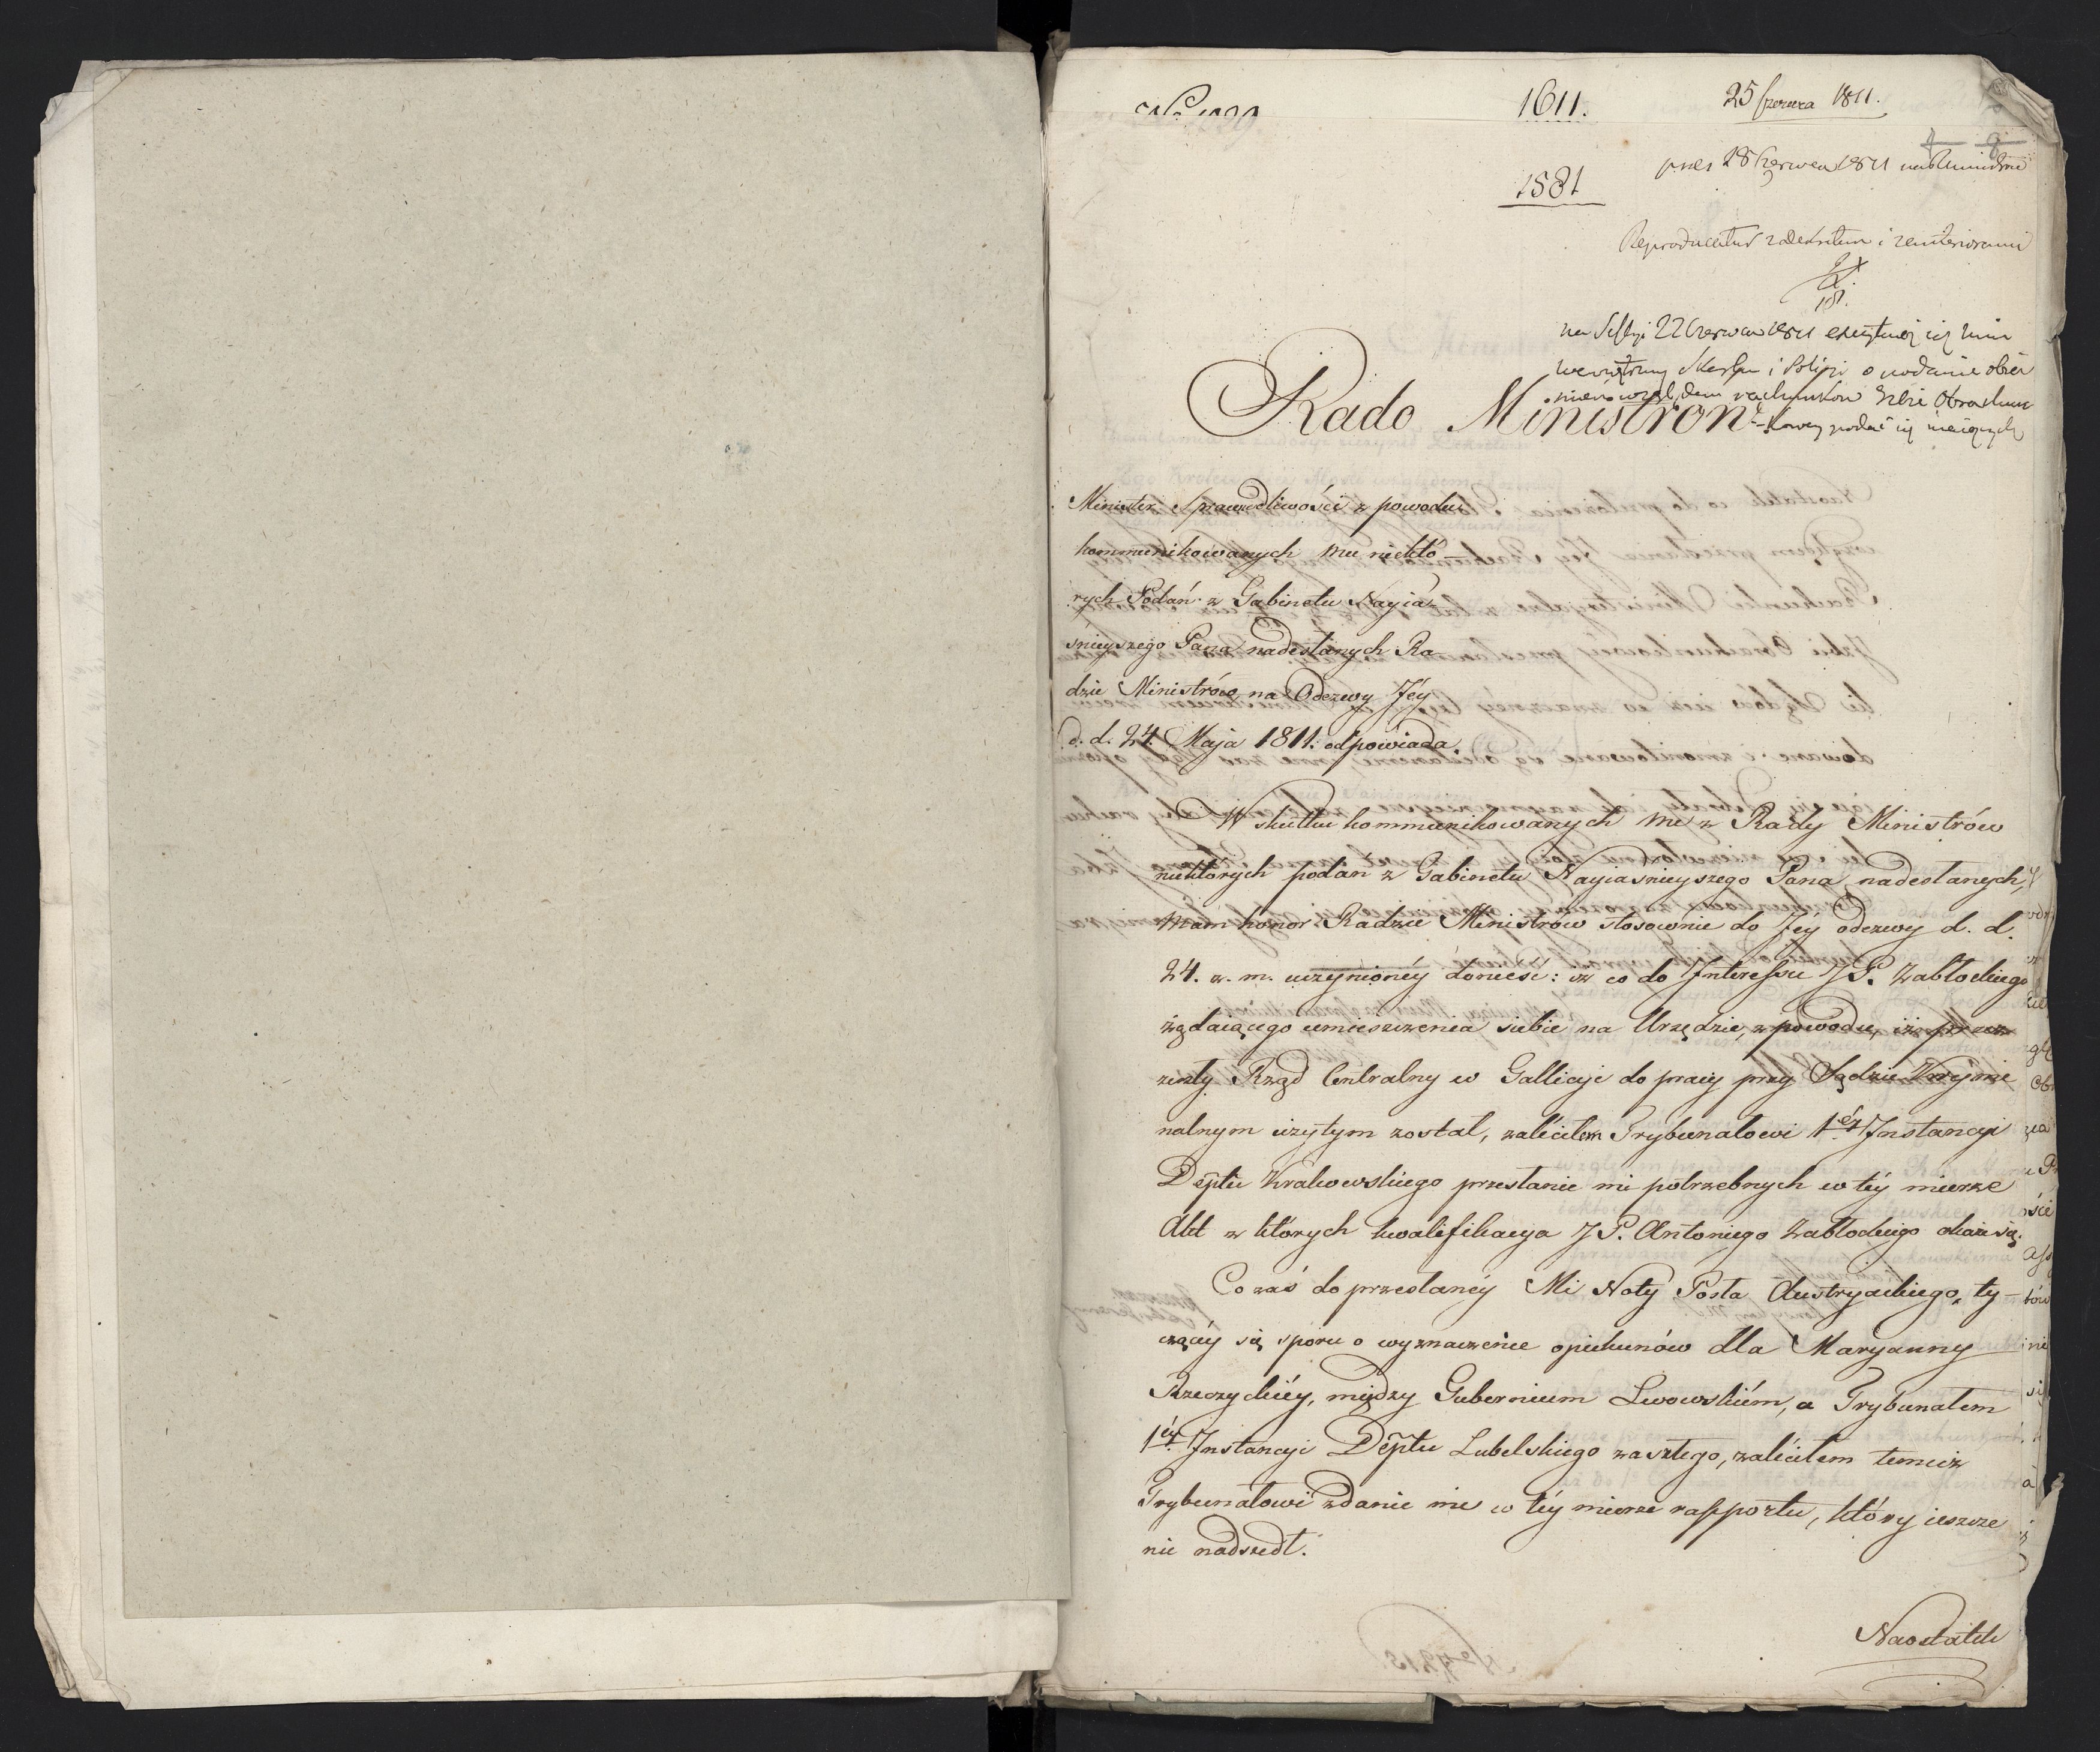 1611.
25 Czerwca 1811.
1581
Rado Ministrow
na Sessyi 22 Czerwca 1811
Minister Sprawiedliwości z powodu
kommunikowanych mu niektó-
rych Podań z Gabinetu Nayia-
śnieyszego Pana nadesłanych Ra-
dzie Ministrów na Odezwy Jéy
d. d. 24. Maja 1811. odpowiada.
W skutku kommunikowanych mi z Rady Ministrów
niektórych podań z Gabinetu Nayiaśnieyszego Pana nadesłanych,
mam honor Radzie Ministrów stosownie do Jéy odezwy d. d.
24. z. m. uczynionéy donieść: iż co do Interessu J P. Zabłockiego
żądaiącego umieszczenia siebie na Urzędzie, z powodu, iż przez
zeszły Rząd Centralny w Gallicyi do pracy przy Sądzie Krymi
nalnym użytym został, zaleciłem Trybunałowi 1éy Instancyi
Deptu Krakowskiego przesłanie mi potrzebnych w téy mierze
Akt z których kwalifikacya J P. Antoniego Zabłockiego okaże się.
Co zaś do przesłanéy Mi Noty Posła Austryackiego, ty-
czącéy się sporu o wyznaczenie opiekunów dla Maryanny
Rzeczyckiéy, między Gubernium Lwowskiém, a Trybunałem
1éy Instancyi Deptu Lubelskiego zaszłego, zaleciłem temuż
Trybunałowi zdanie mi w téy mierze rapportu, który ieszcze
nie nadszedł.
Naostatek